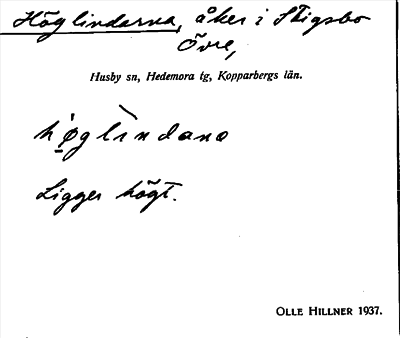 Höglindarna, åker i Stigsbo
Övre,
Husby sn, Hedemora tg, Kopparbergs län.
hø̀glìndano
Ligger högt.
OLLE HILLNER 1937.